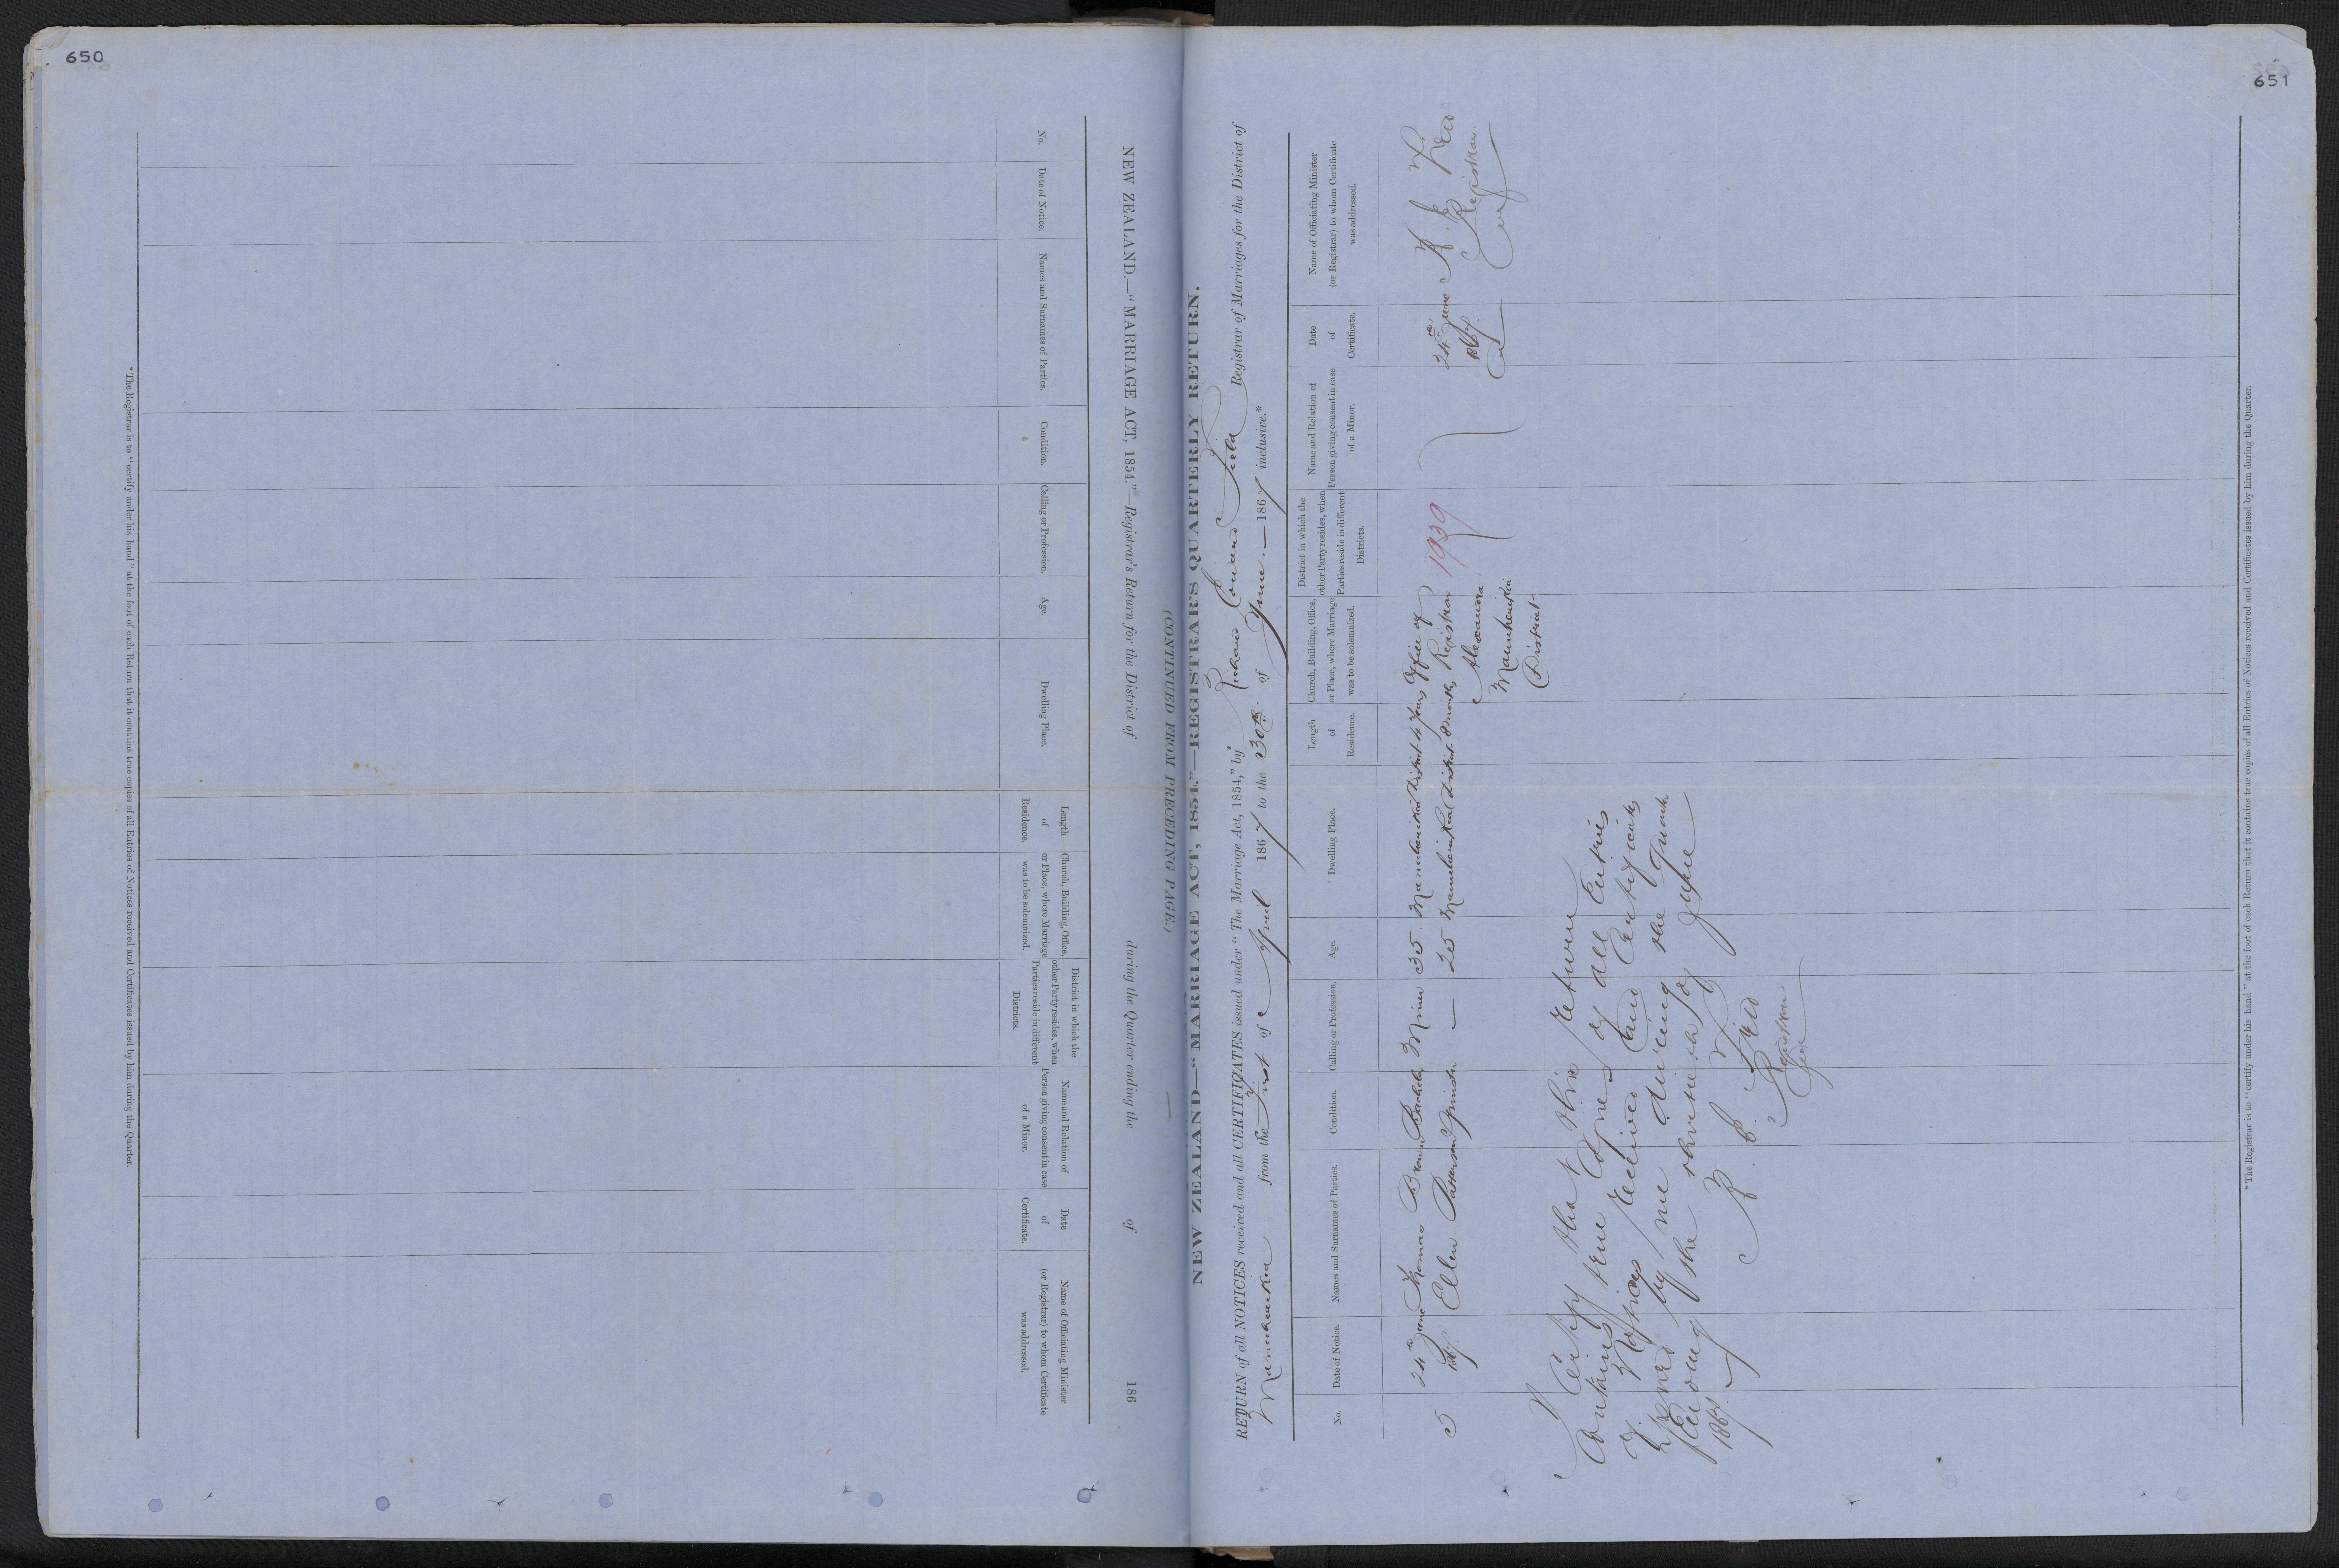 650
NEW ZEALAND.—"MARRIAGE ACT, 1854."—Registrar's Return for the District of during the Quarter ending the of 186
No.
Date of Notice.
Names and Surnames of Parties.
Condition.
Calling or Profession.
Age.
Dwelling Place.
Length
of
Residence.
Church, Building, Office,
or Place, where Marriage
was to be solemnized.
District in which the
other Party resides, when
Parties reside in different
Districts.
Name and Relation of
Person giving consent in case
of a Minor.
Date
of
Certificate.
Name of Officiating Minister
(or Registrar) to whom Certificate
was addressed.
* The Registrar is to "certify under his hand" at the foot of each Return that it contains true copies of all Entries of Notices received and Certificates issued by him during the Quarter.
651
(CONTINUED FROM PRECEDING PAGE.)
NEW ZEALAND—"MARRIAGE ACT, 1854."—REGISTRAR'S QUARTERLY RETURN.
RETURN of all NOTICES received and all CERTIFICATES issued under "The Marriage Act, 1854," by Richard Edward Field Registrar of Marriages for the District of
Manuherikia from the First of April 1867 to the 30th of June.— 1867 inclusive.*
No.
Date of Notice.
Names and Surnames of Parties.
Condition.
Calling or Profession.
Age.
Dwelling Place.
Length
of
Residence.
Church, Building, Office,
or Place, where Marriage
was to be solemnized.
District in which the
other Party resides, when
Parties reside in different
Districts.
Name and Relation of
Person giving consent in case
of a Minor.
Date
of
Certificate.
Name of Officiating Minister
(or Registrar) to whom Certificate
was addressed.
5 24th June Thomas Brown Bachelor Miner 35 Manuherikia District 4 Years Office of 1939 24th June R E Field
1867 Ellen Patterson Spinster — 25 Manuherikia District 8 months Registrar 1867. Registrar
Alexandra
Manuherikia
District
I Certify that this return
Contains true Copies of all Entries
of Notices received and Certificates
issued by me during the Quarter
ending the thirtieth of June
1867.
R. E. Field
Registrar
* The Registrar is to "certify under his hand" at the foot of each Return that it contains true copies of all Entries of Notices received and Certificates issued by him during the Quarter.